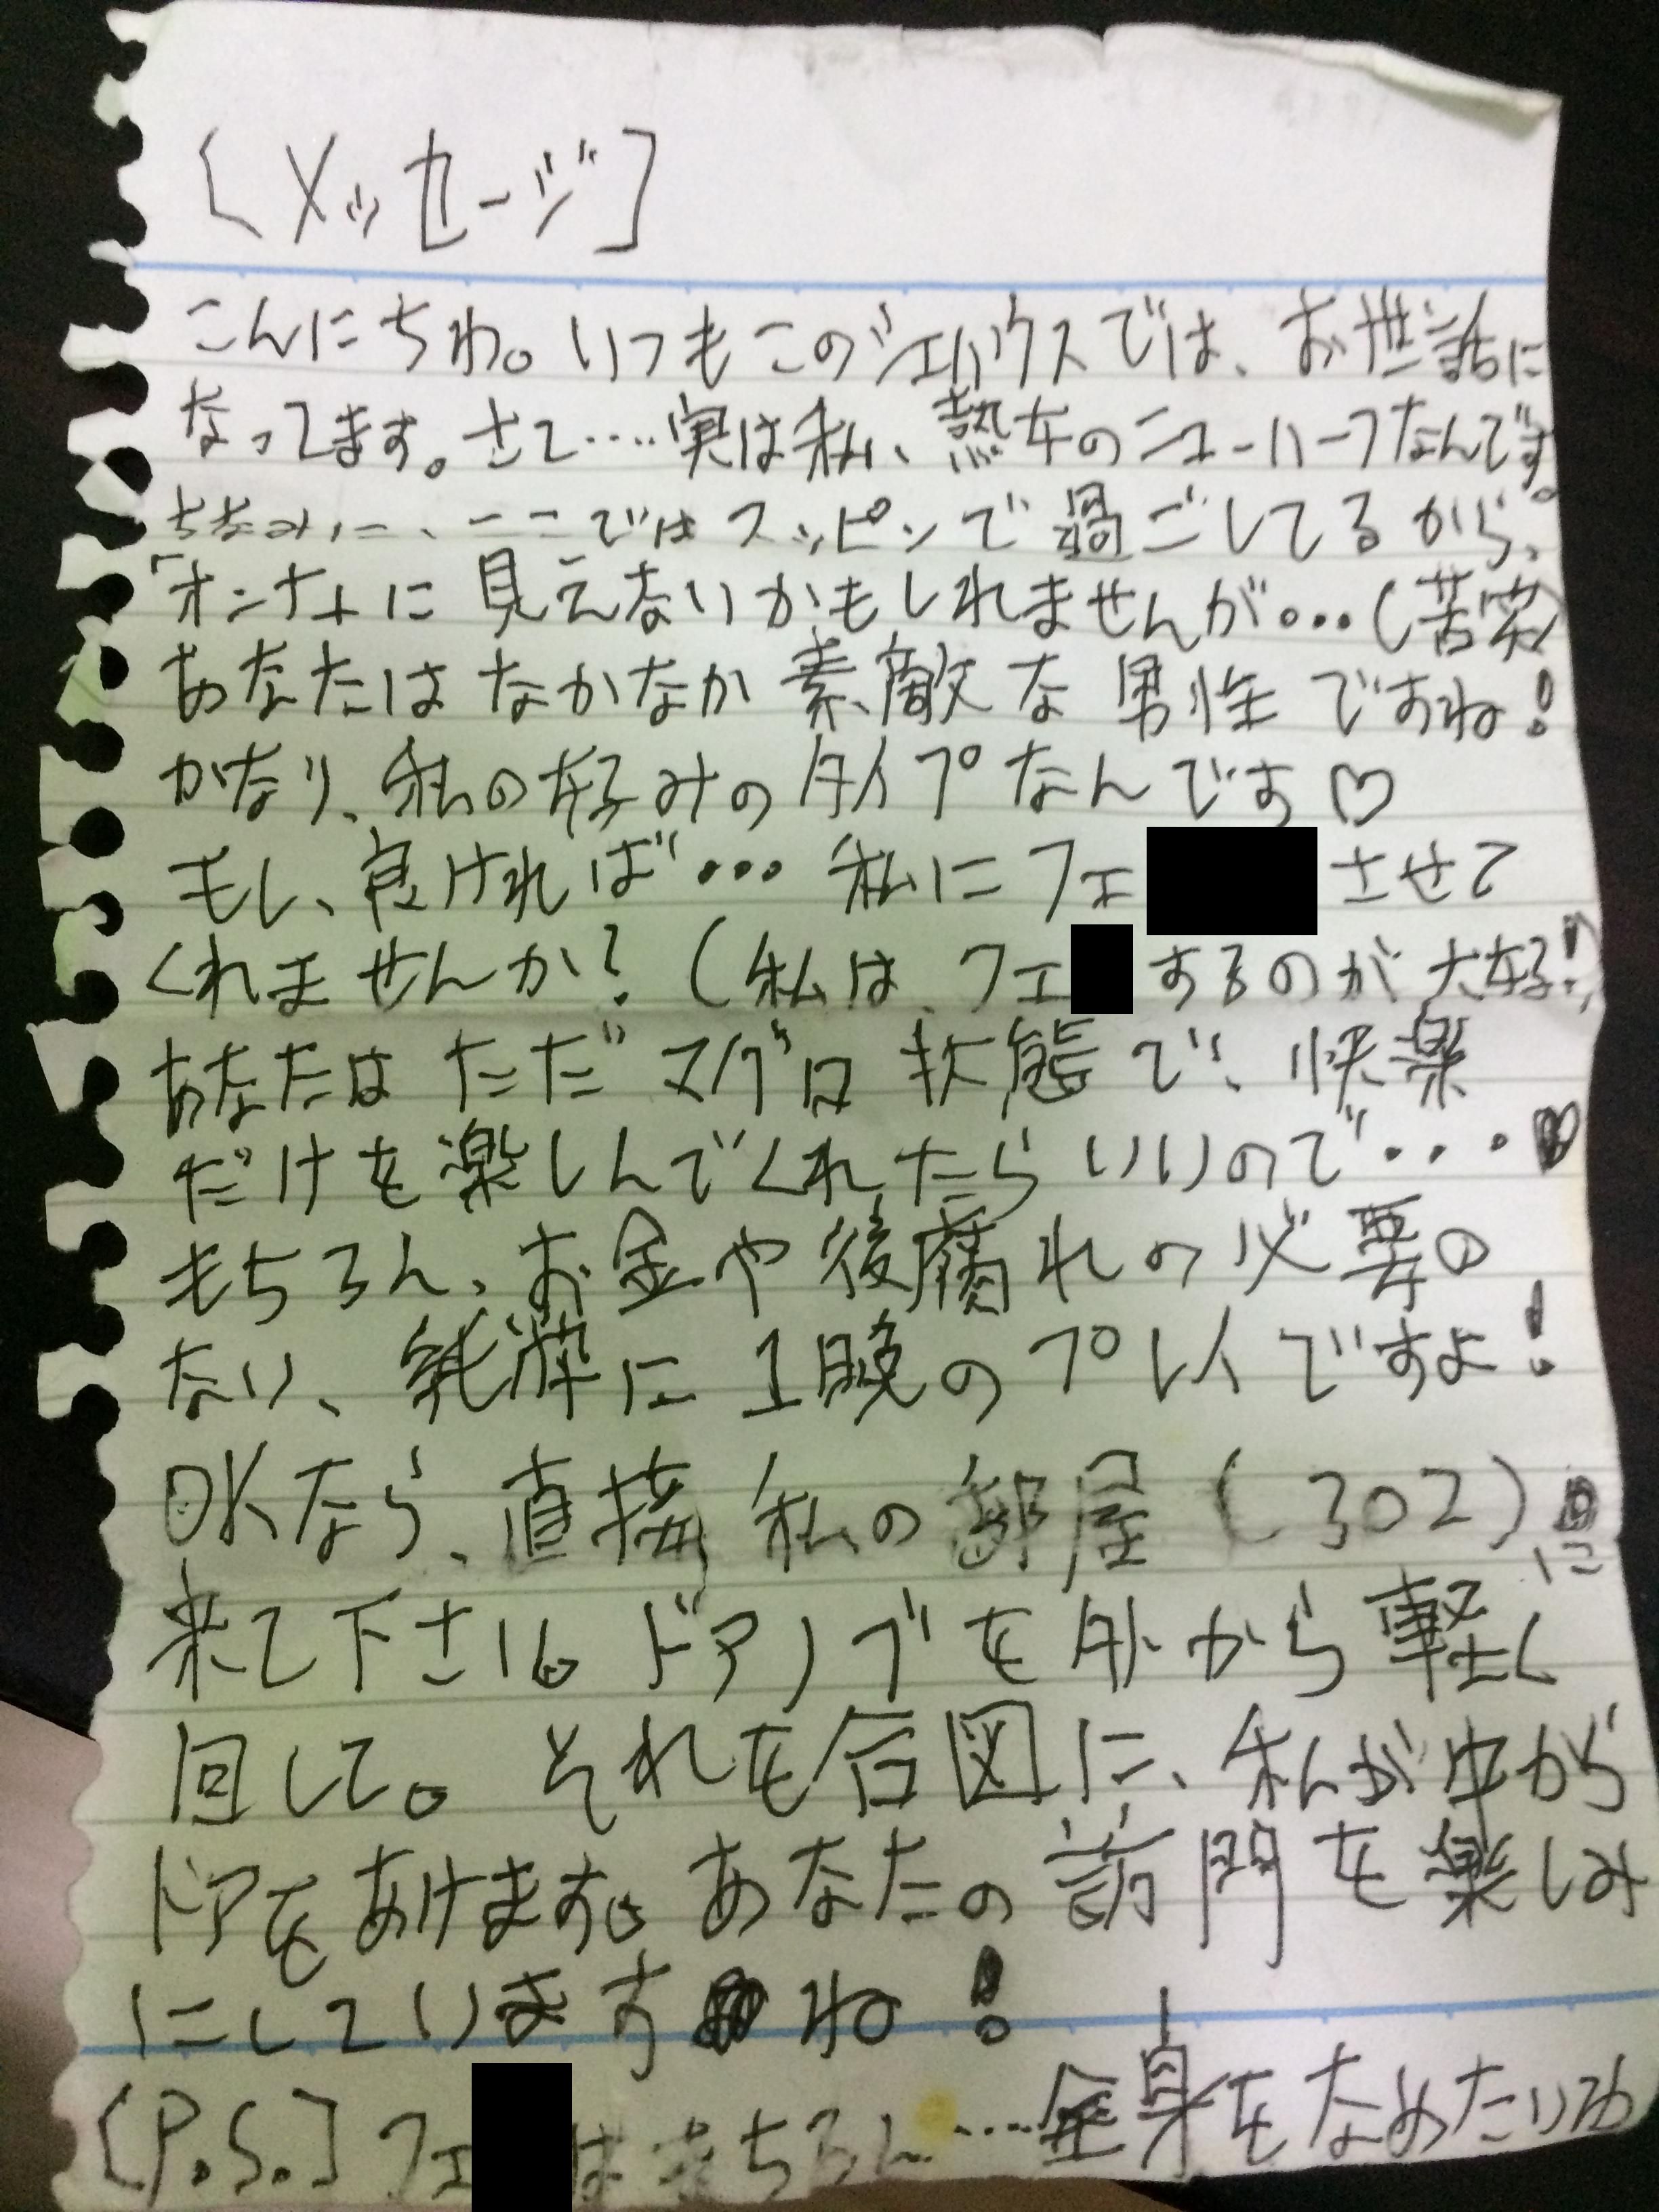 〔メッセージ〕
こんにちわ。いつもこのシェハウスでは、お世話に
なってます。さて……実は私、熟女のニューハーフなんです。
ちなみに、ここではスッピンで過ごしてるから、
「オンナ」に見えないかもしれませんが…(苦笑)
あなたはなかなか素敵な男性ですね!
かなり、私の好みのタイプなんです♡
もし、良ければ…私にフェ させて
くれませんか?(私は、フェ するのが大好き!)
あなたはただマグロ状態で、快楽
だけを楽しんでくれたらいいので…♥
もちろん、お金や後腐れの必要の
ない、純粋に1晩のプレイですよ!
OKなら、直接私の部屋(302)に
来て下さい。ドアノブを外から軽く
回して。それを合図に、私が中から
ドアをあけます。あなたの訪問を楽しみ
にしていますね!
〔P.S.〕フェ はもちろん……全身をなめたいわ